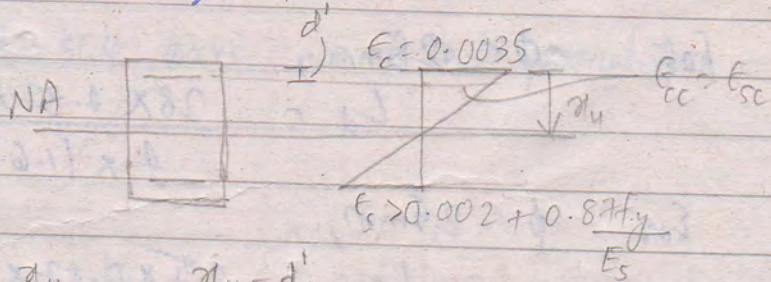 d'
ϵc = 0.0035
NA
ϵcc = ϵsc
xu
ϵs > 0.002 + 0.87fy
Es
xu xu - d'